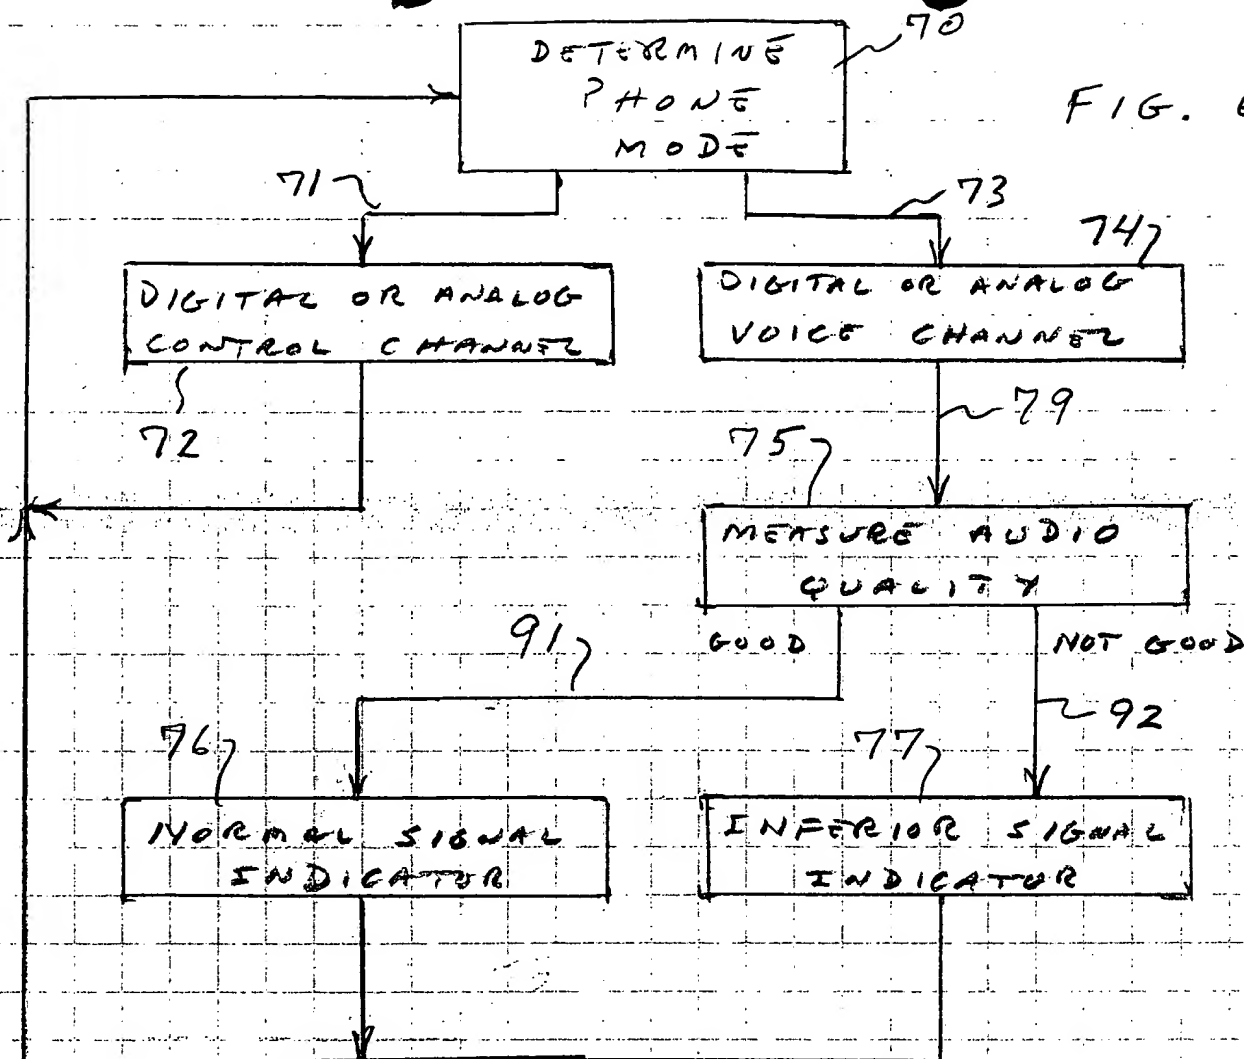 70
DETERMINE
PHONE
MODE
FIG.
71
73
74
DIGITAL OR ANALOG
CONTROL CHANNEL
DIGITAL OR ANALOG
VOICE CHANNEL
72
79
75
MEASURE AUDIO
QUALITY
GOOD
NOT GOOD
91
92
76
77
NORMAL SIGNAL
INDICATOR
INFERIOR SIGNAL
INDICATOR